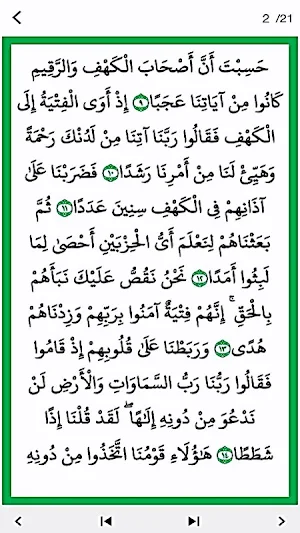 2 /21
حَسِبْتَ أَنَّ أَصْحَابَ الْكَهْفِ وَالرَّقِيمِ
كَانُوا مِنْ آيَاتِنَا عَجَبًا ٩ إِذْ أَوَى الْفِتْيَةُ إِلَى
الْكَهْفِ فَقَالُوا رَبَّنَا آتِنَا مِنْ لَدُنْكَ رَحْمَةً
وَهَيِّئْ لَنَا مِنْ أَمْرِنَا رَشَدًا ١٠ فَضَرَبْنَا عَلَىٰ
آذَانِهِمْ فِي الْكَهْفِ سِنِينَ عَدَدًا ١١ ثُمَّ
بَعَثْنَاهُمْ لِنَعْلَمَ أَيُّ الْحِزْبَيْنِ أَحْصَىٰ لِمَا
لَبِثُوا أَمَدًا ١٢ نَحْنُ نَقُصُّ عَلَيْكَ نَبَأَهُمْ
بِالْحَقِّ ۚ إِنَّهُمْ فِتْيَةٌ آمَنُوا بِرَبِّهِمْ وَزِدْنَاهُمْ
هُدًى ١٣ وَرَبَطْنَا عَلَىٰ قُلُوبِهِمْ إِذْ قَامُوا
فَقَالُوا رَبُّنَا رَبُّ السَّمَاوَاتِ وَالْأَرْضِ لَنْ
نَدْعُوَ مِنْ دُونِهِ إِلَٰهًا ۖ لَقَدْ قُلْنَا إِذًا
شَطَطًا ١٤ هَٰؤُلَاءِ قَوْمُنَا اتَّخَذُوا مِنْ دُونِهِ